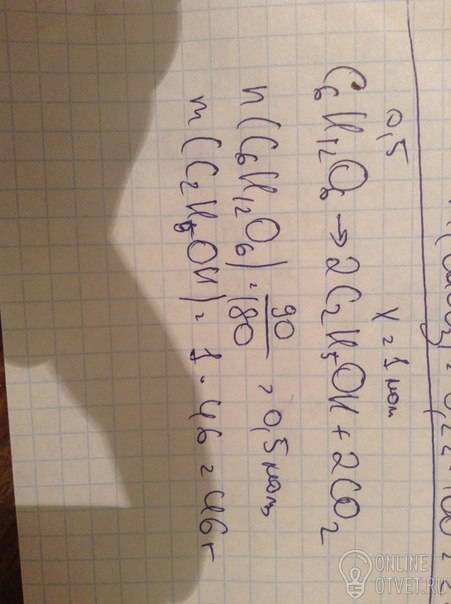 0,5 x = 1 моль
C6H12O6 → 2C2H5OH + 2CO2
n(C6H12O6) = 90/180 = 0,5 моль
m(C2H5OH) = 1 · 46 = 46 г
ONLINE
OTVET.RU